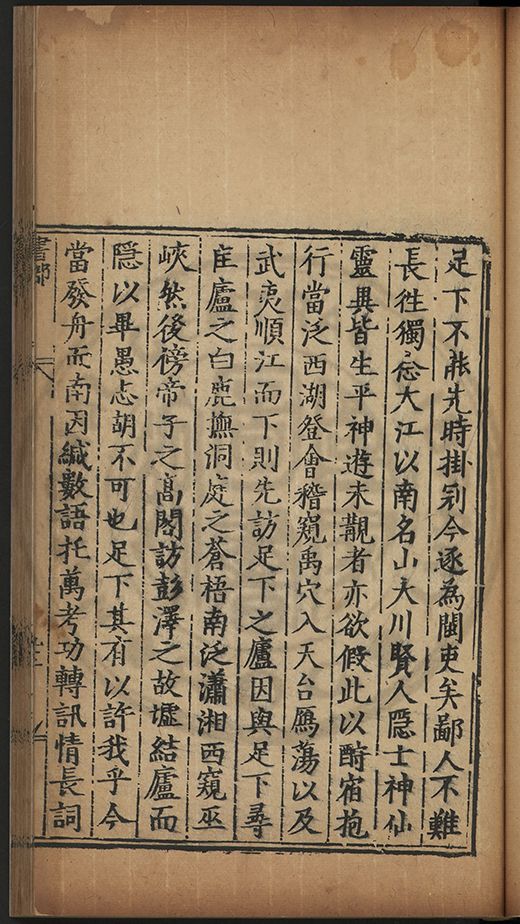 足下不能先時掛剡今逐為閩吏矣鄙人不難
長徃獨念大江以南名山大川賢人隱士神仙
靈異皆生平神遊未覩者亦欲假此以酧宿抱
行當泛西湖登會稽窺禹穴入天台鴈蕩以及
武夷順江而下則先訪足下之廬因與足下尋
匡廬之白鹿撫洞庭之蒼梧南泛瀟湘西窺巫
峽然後傍帝子之高閣訪彭澤之故墟結廬而
隱以畢愚志胡不可也足下其有以許我乎今
當發舟而南因緘數語托萬考功轉訊情長詞
書部